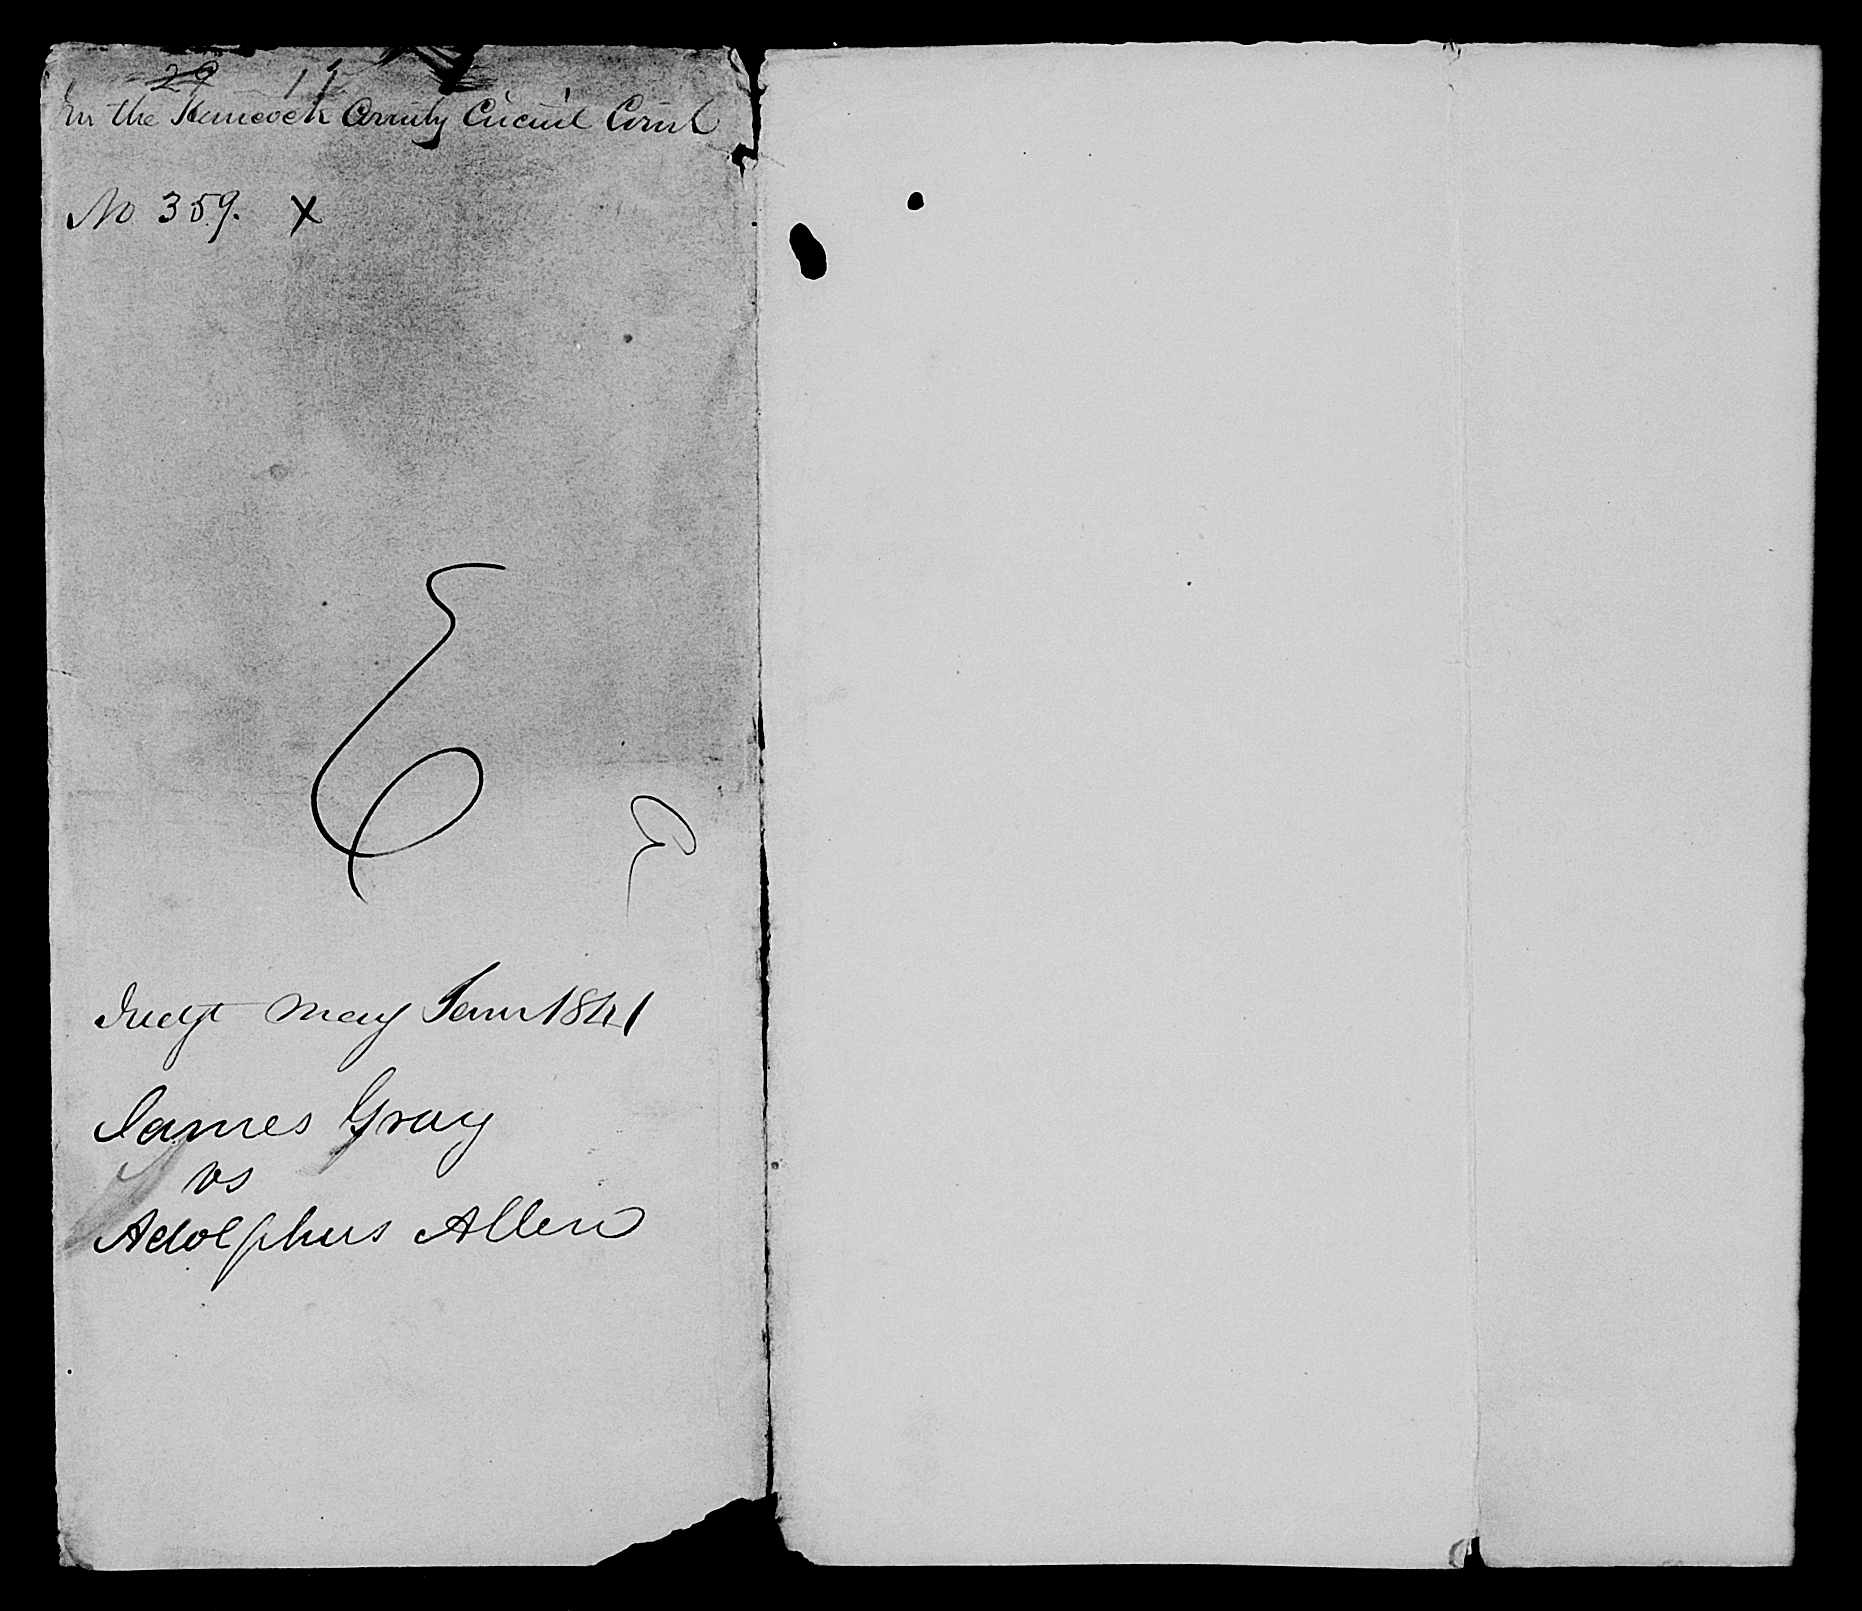 29 11
In the Hancock County Circuit Court
No 359. X
E
Judgt May Term 1841
James Gray
vs
Adolphus Allen